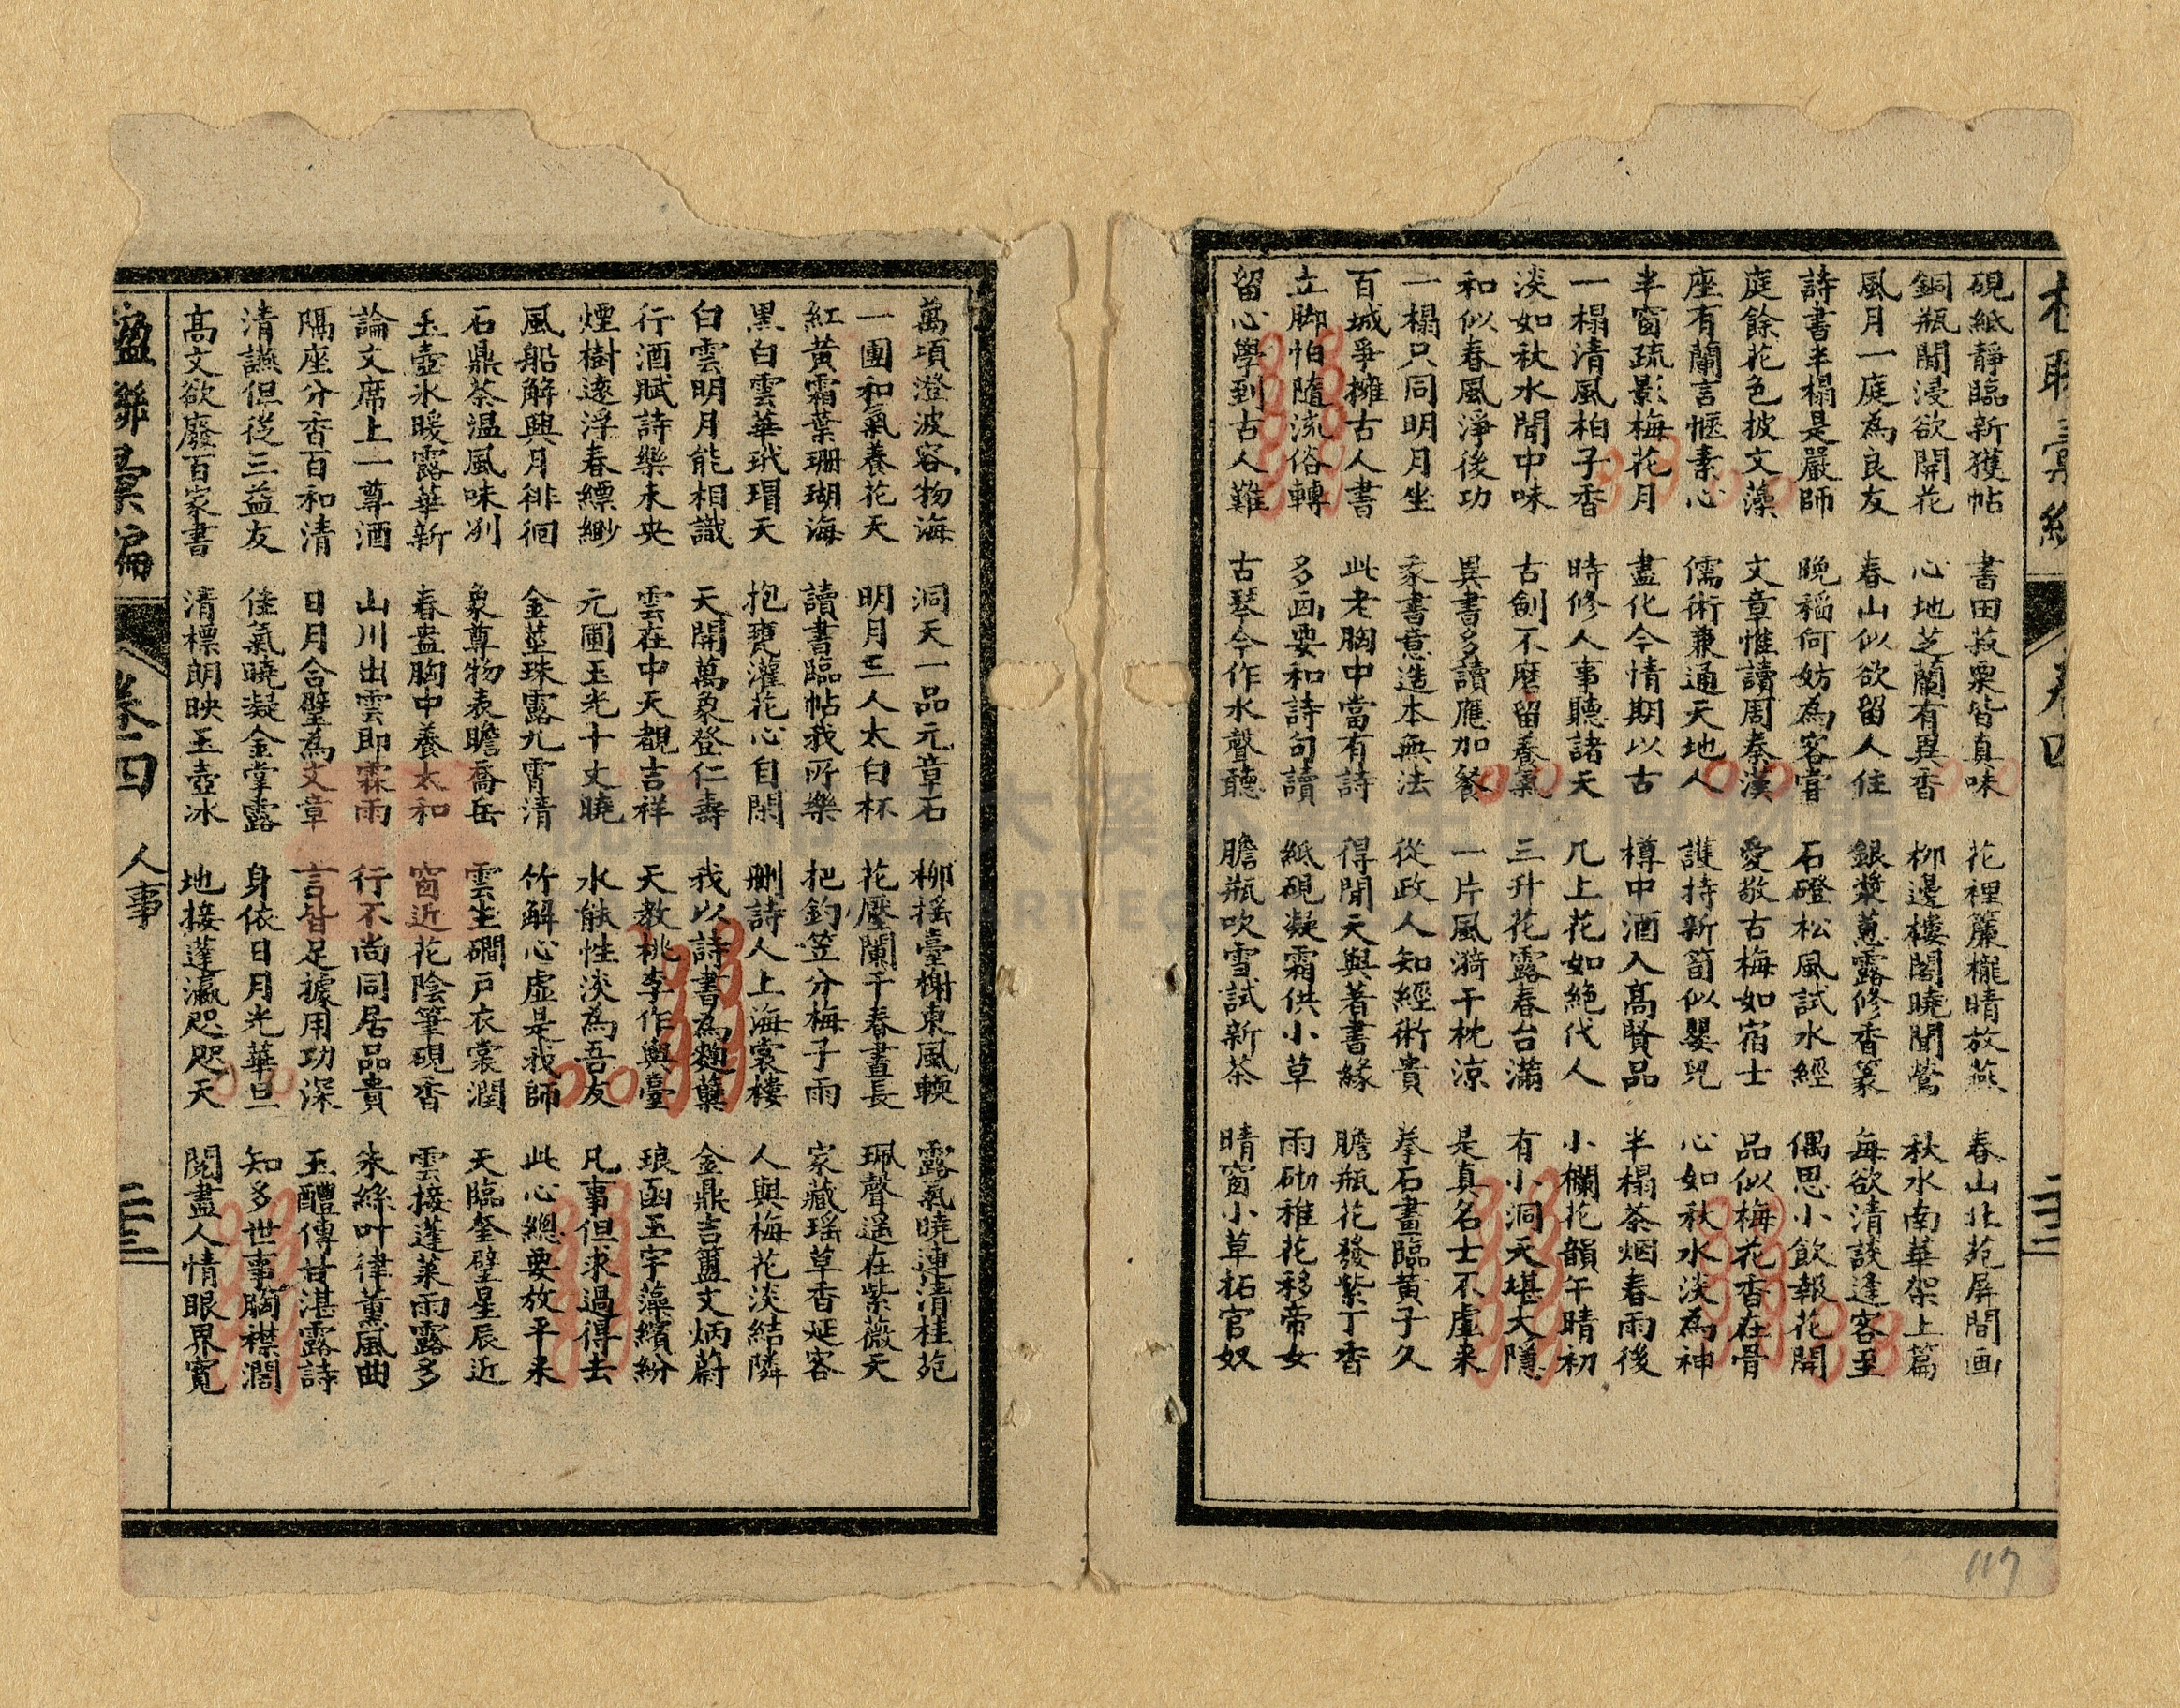 卷四
二十三
硯紙靜臨新獲帖 書田菽粟皆真味 花裡簾櫳晴放燕 春山北苑屏間画
銅瓶閒浸欲開花 心地芝蘭有異香 柳邊樓閣曉聞鶯 秋水南華架上篇
風月一庭為良友 春山似欲留人住 銀漿蔥露修香篆 每欲清談逢客至
詩書半榻是嚴師 晚稻何妨為客嘗 石磴松風試水經 偶思小飲報花開
庭餘花色披文藻 文章惟讀周秦漢 愛敬古梅如宿士 品似梅花香在骨
座有蘭言愜素心 儒術兼通天地人 護持新筍似嬰兒 心如秋水淡為神
半窗疏影梅花月 盡化今情期以古 樽中酒入高賢品 半榻茶烟春雨後
一榻清風柏子香 時修人事聽諸天 几上花如絕代人 小欄花韻午晴初
淡如秋水閒中味 古劍不磨留養氣 三升花露春台滿 有小洞天堪大隱
和似春風淨後功 異書多讀應加餐 一片風漪干枕涼 是真名士不虛来
一榻只同明月坐 篆書意造本無法 從政人知經術貴 拳石畫臨黃子久
百城爭擁古人書 此老胸中當有詩 得閒天與著書緣 膽瓶花發紫丁香
立脚怕隨流俗轉 多画要和詩句讀 紙硯凝霜供小草 雨砌稚花移帝女
留心學到古人難 古琴今作水聲聽 膽瓶吹雪試新茶 晴窗小草拓官奴
萬項澄波容物海 洞天一品元章石 柳搖臺榭東風輭 露氣曉連清桂苑
一團和氣養花天 明月三人太白杯 花壓闌干春晝長 珮聲遥在紫薇天
紅黃霜葉珊瑚海 讀書臨帖我所樂 把釣笠分梅子雨 家藏瑶草香延客
黑白雲華玳瑁天 抱甕灌花心自閑 刪詩人上海裳樓 人與梅花淡結隣
白雲明月能相識 天開萬象登仁壽 我以詩書為麴糵 金鼎吉簠文炳蔚
行酒賦詩樂未央 雲在中天覩吉祥 天教桃李作輿臺 琅函玉宇藻繽紛
煙樹遠浮春縹緲 元圃玉光十丈曉 水能性淡為吾友 凡事但求過得去
風船解與月徘徊 金莖珠露九霄清 竹解心虛是我師 此心總要放平来
石鼎茶温風味别 象尊物表瞻喬岳 雲生磵戶衣裳潤 天臨奎璧星辰近
玉壺氷暖露華新 春盎胸中養太和 窗近花陰筆硯香 雲接蓬萊雨露多
論文席上一尊酒 山川出雲即霖雨 行不尚同居品貴 朱絲叶律薰風曲
隔座分香百和清 日月合璧為文章 言皆足據用功深 玉醴傳甘湛露詩
清讌但從三益友 佳氣曉凝金掌露 身依日月光華旦 知多世事胸襟濶
高文欲廢百家書 清標朗映玉壺冰 地接蓬瀛咫咫天 閱盡人情眼界寬
楹聯彙編
卷四
人事
二十三
117